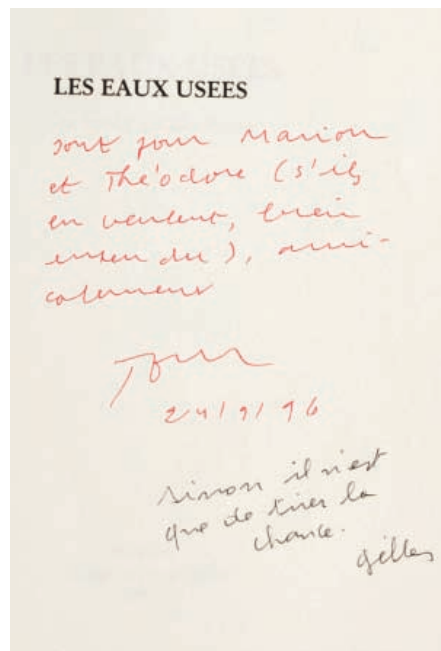 LES EAUX USEES
sont pour Marion
et Théodore (s'ils
en veulent, bien
entendu), ami-
calement
24/9/96
sinon il n'est
que de tirer la
chance.
gilles